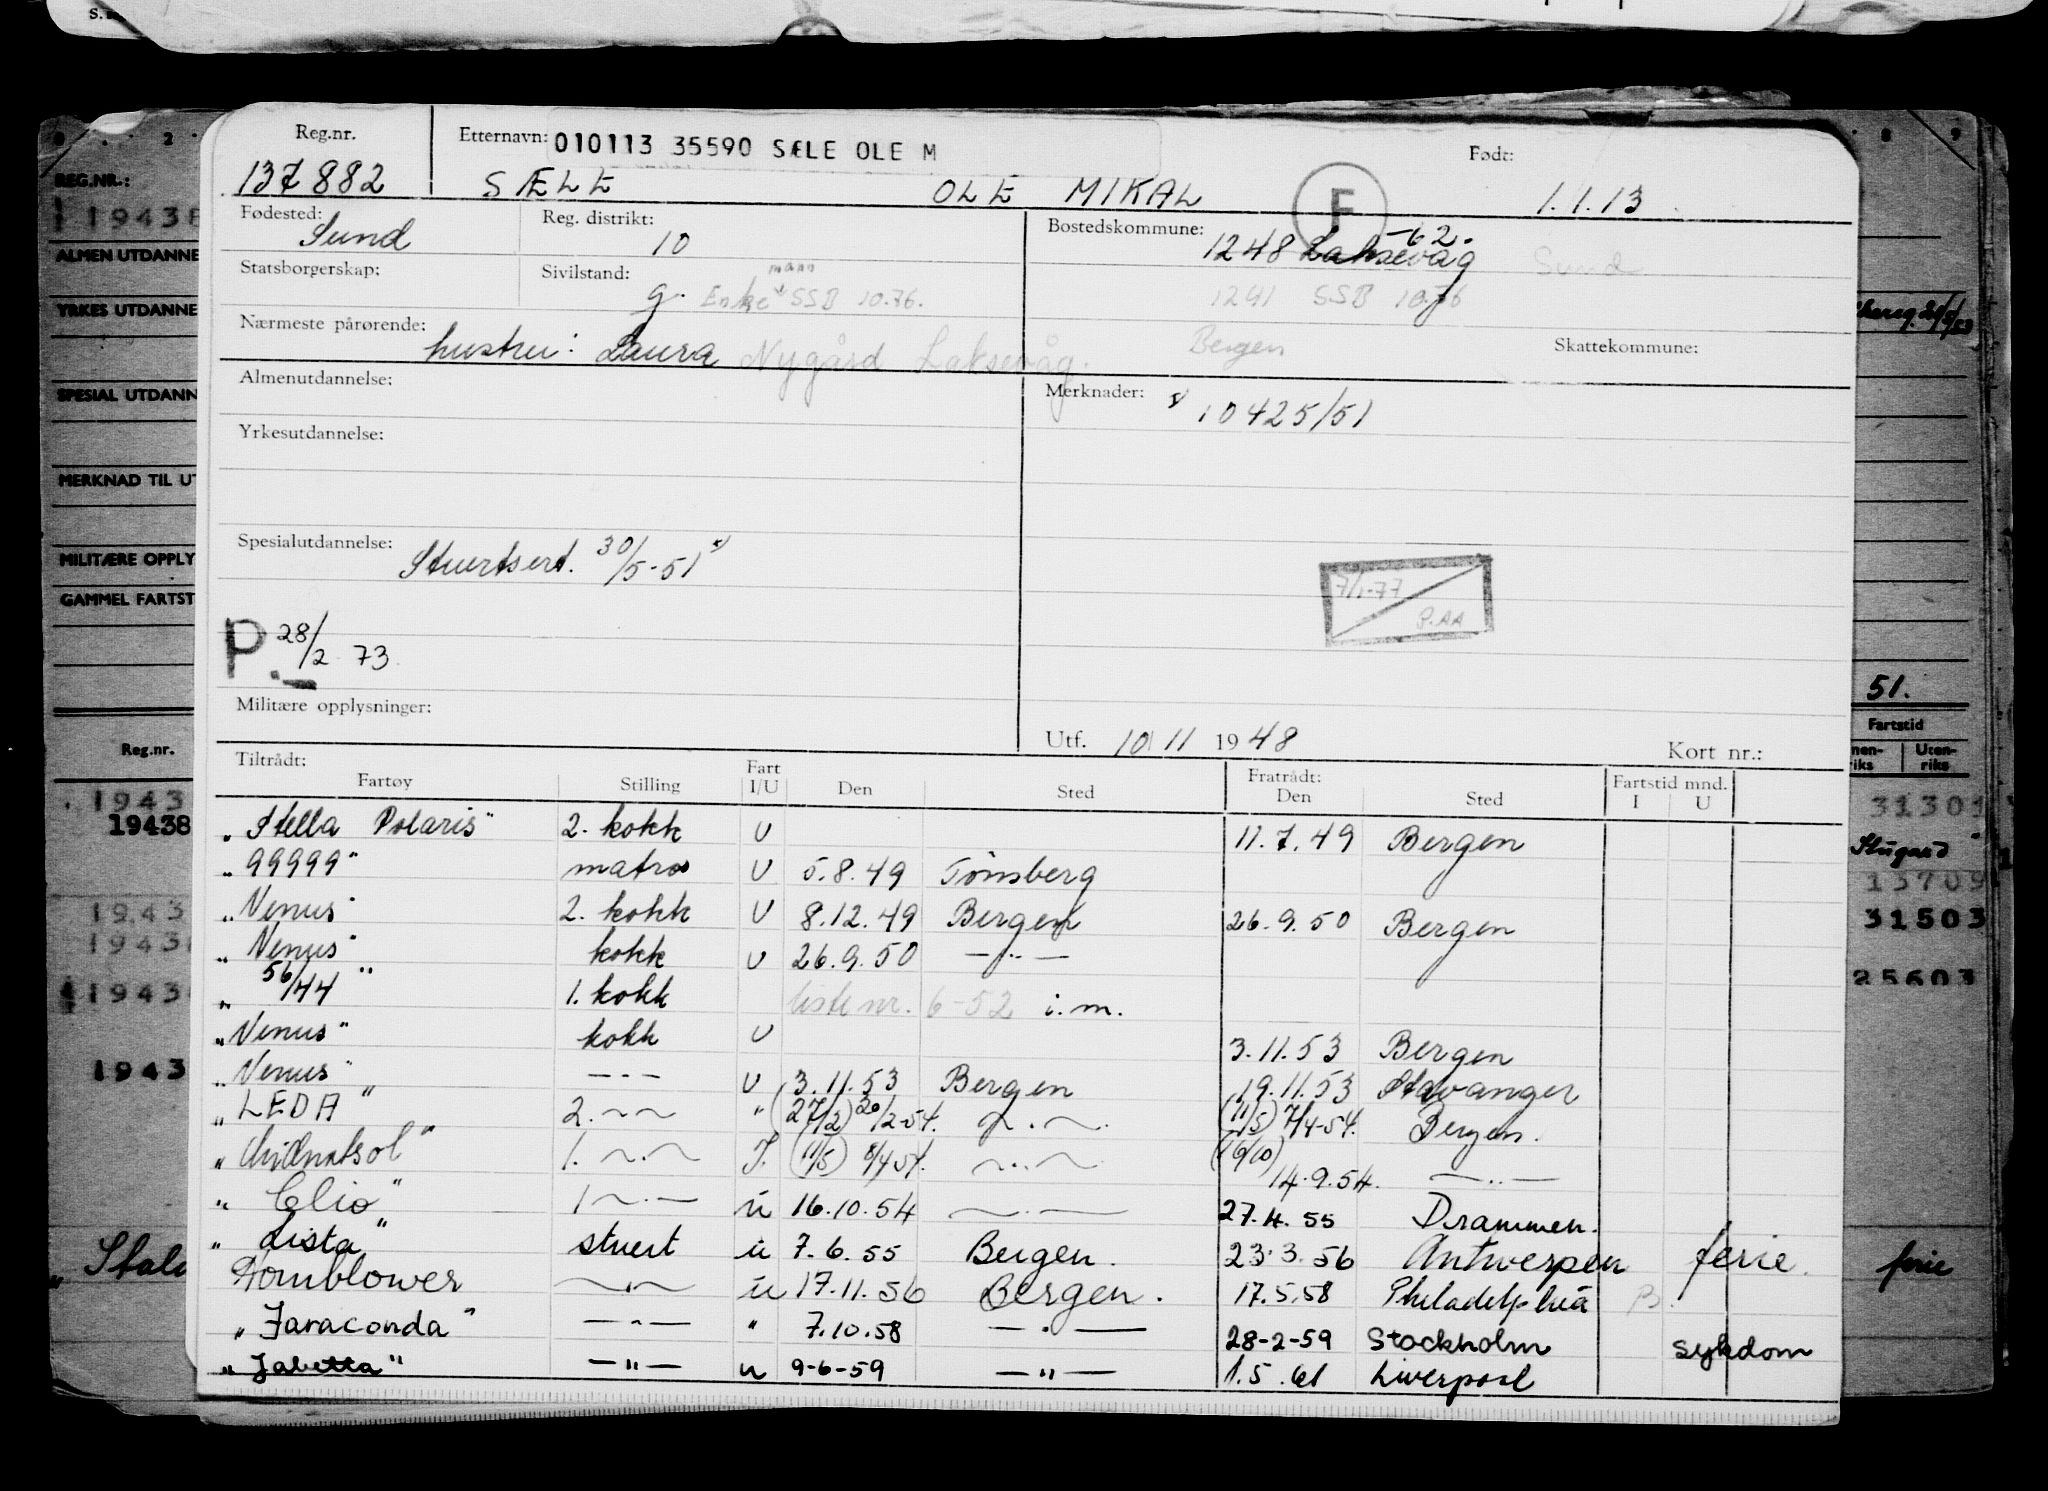 Reg.nr. Etternavn: 010113 35590 SÆLE OLE M Født:
137882 SÆLE OLE MIKAL F 1.1.13
Fødested: Sund Reg. distrikt: 10 Bostedskommune: 1248 Laksevåg -62. Sund
Statsborgerskap: Sivilstand: g. Enke mann SSB 10.76. 1241 SSB 10.76
Nærmeste pårørende: hustru: Laura Nygård Laksevåg. Bergen Skattekommune:
Almenutdannelse: Merknader: 10425/51
Yrkesutdannelse:
Spesialutdannelse: Stuertsert. 30/5-51
7/1-77 P.AA
P. 28/2 73
Militære opplysninger:
Utf. 10/11 1948 Kort nr.:
Tiltrådt: Fratrådt: Fartstid mnd.
Fartøy Stilling Fart I/U Den Sted Den Sted I U
"Stella Polaris" 2. kokk U 11.7.49 Bergen
"99999" matros U 5.8.49 Tønsberg
"Venus" 2. kokk U 8.12.49 Bergen 26.9.50 Bergen
"Venus" kokk U 26.9.50 —"—
"56/44" 1. kokk liste nr. 6-52 i.m.
"Venus" kokk U 3.11.53 Bergen
"Venus" —"— U 3.11.53 Bergen 19.11.53 Stavanger
"LEDA" 2. —"— " (27/2) 20/2-54. —"— (11/5) 7/4-54. Bergen.
"Midnatsol" 1. —"— I. (11/5) 8/4 54. —"— (19/10) 14.9.54. —"—
"Clio" 1 —"— u 16.10.54 —"— 27.4.55 Drammen.
"Lista" stuert u 7.6.55 Bergen. 23.3.56 Antwerpen ferie.
Hornblower —"— u 17.11.56 Bergen. 17.5.58 Philadelphia
"Jaraconda" —"— " 7.10.58 —"— 28-2-59 Stockholm sykdom
"Jabetta" —"— u 9-6-59 —"— 1.5.61 Liverpool
REG.NR.:
ALMEN UTDANNE
YRKES UTDANNE
SPESIAL UTDANN
MERKNAD TIL UT
MILITÆRE OPPLY
GAMMEL FARTST
Reg.nr.
19438
51.
Fartstid
Uten-riks
31301
13709
31503
25603
ferie